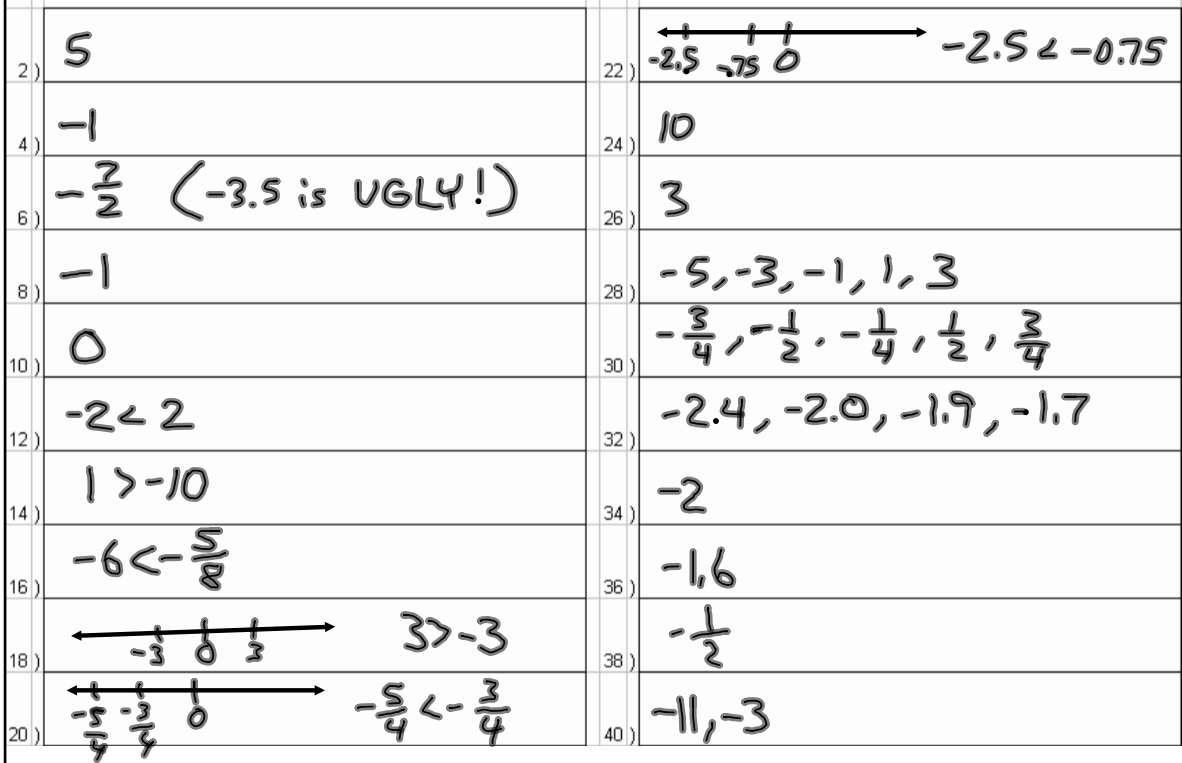 2) 5
4) -1
6) -7/2 (-3.5 is UGLY!)
8) -1
10) 0
12) -2 < 2
14) 1 > -10
16) -6 < -5/8
18) -3 0 3 3 > -3
20) -5/4 -3/4 0 -5/4 < -3/4
22) -2.5 -.75 0 -2.5 < -0.75
24) 10
26) 3
28) -5, -3, -1, 1, 3
30) -3/4, -1/2, -1/4, 1/2, 3/4
32) -2.4, -2.0, -1.9, -1.7
34) -2
36) -1,6
38) -1/2
40) -11, -3